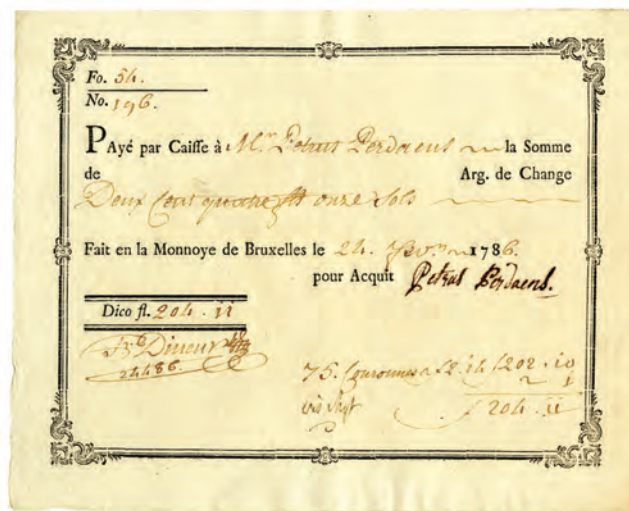 Fo. 54.
No. 196.
PAyé par Caisse à Mr. Petrus Perdaens la Somme
de Arg. de Change
Deux Cent quatre onze Sols
Fait en la Monnoye de Bruxelles le 24. 1786.
pour Acquit Petrus Perdaens.
Dico fl. 204 . 11
24486.
75. Couronnes a 2 . 14 f 202 . 10
2 1
f 204 . 11